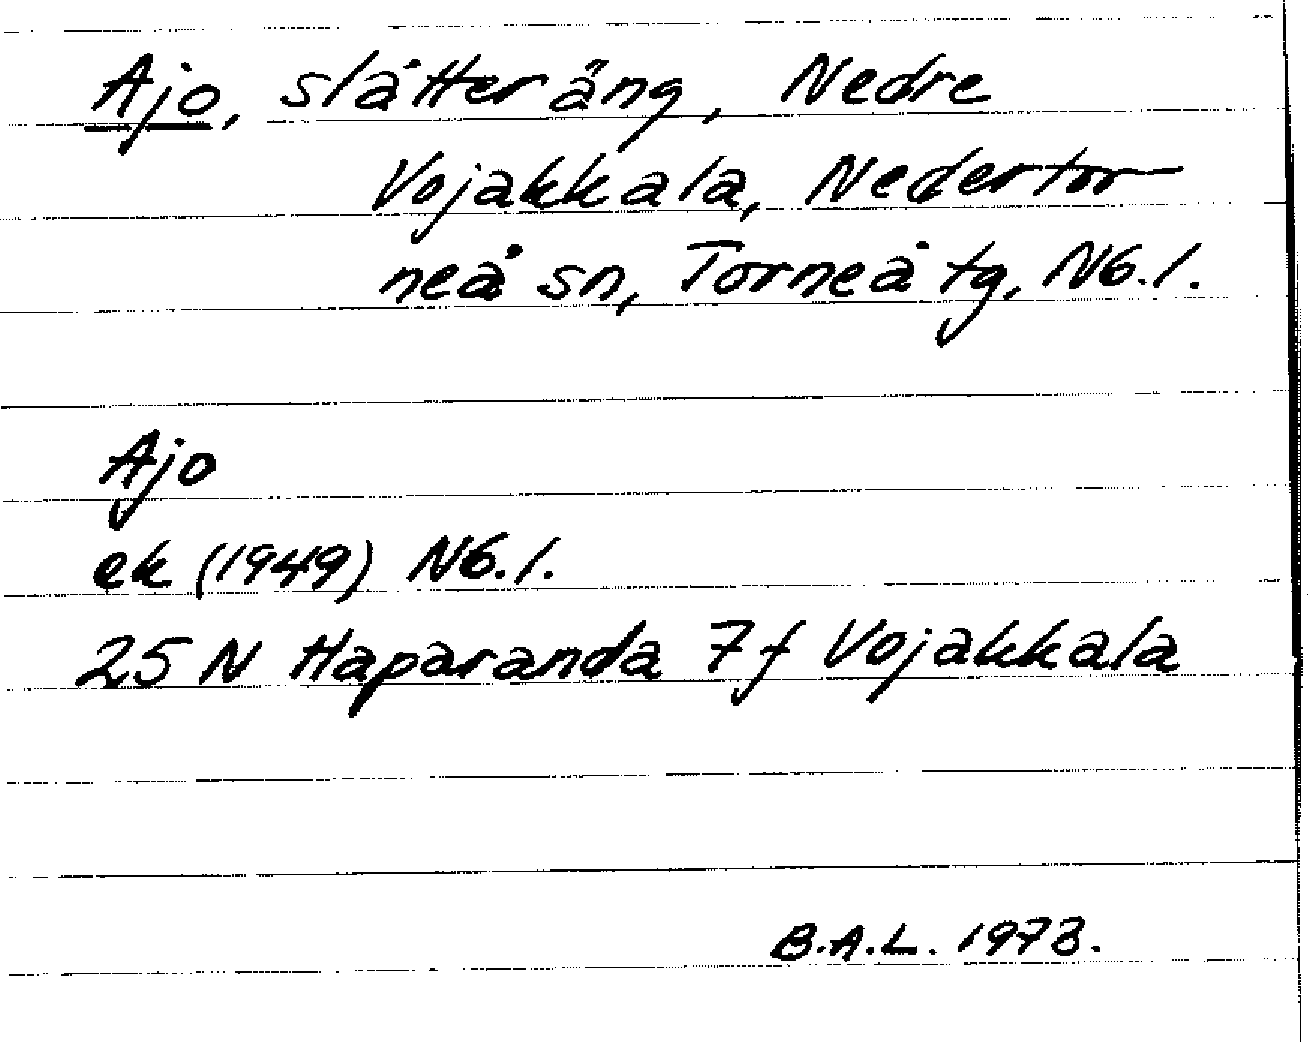 Ajo, slåtteräng, Nedre
Vojakkala, Nedertor
neå sn, Torneå tg, Nb.l.
Ajo
ek (1949) Nb.l.
25 N Haparanda 7f Vojakkala
B.A.L. 1973.